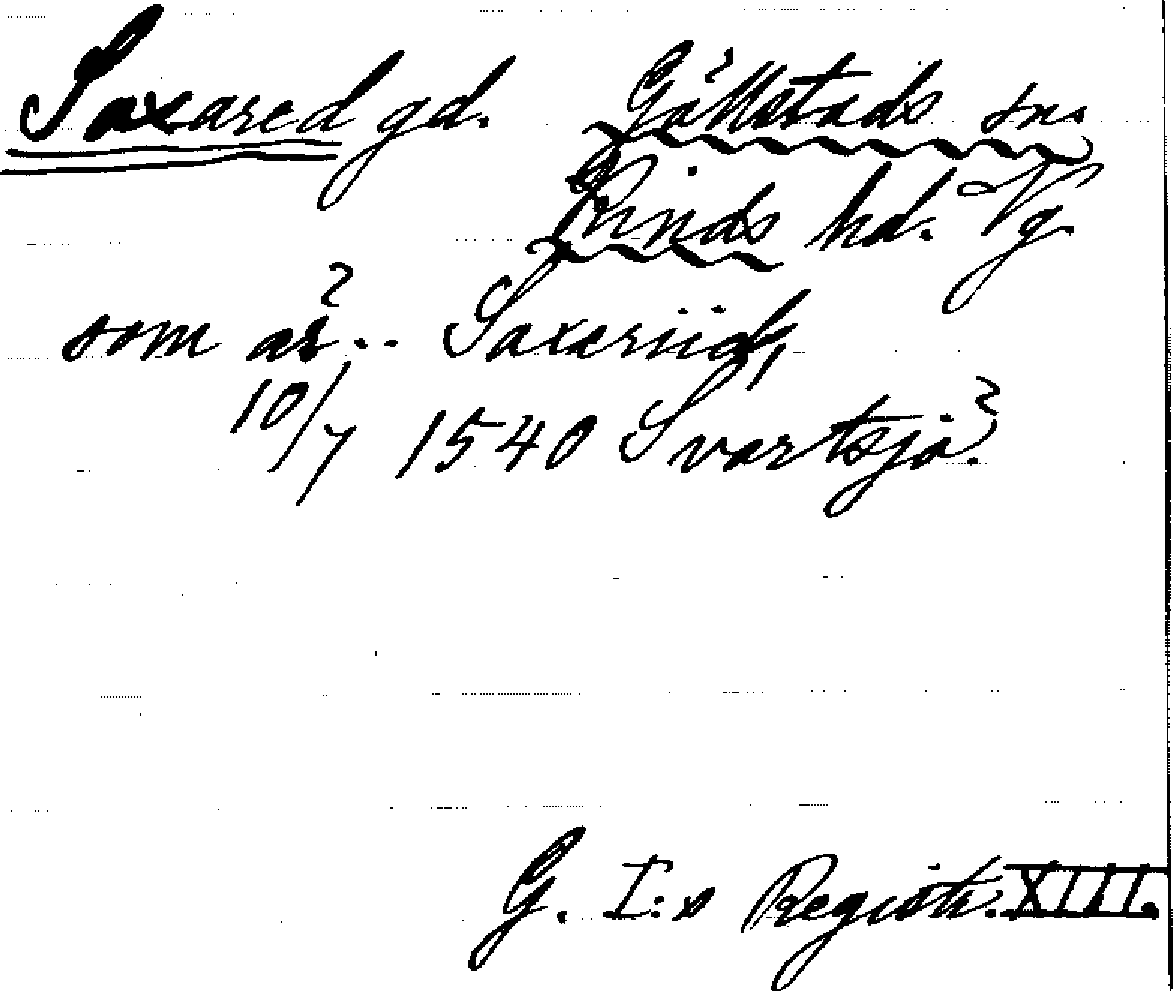 Saxared gd. Gällstads sn.
Kinds hd. Vg.
som är.. Saxeriid,
10/7 1540 Svartsjö.
G. I:s Registr. XIII.